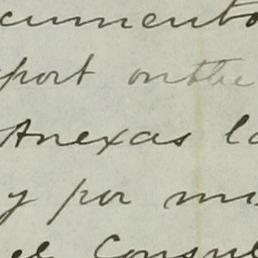 cumento
port on the
Anexas la
y por mi
el Consul